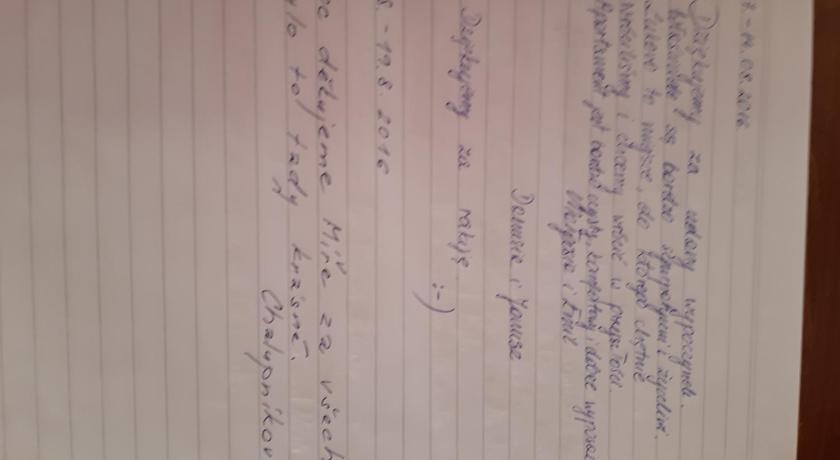 - 14.08.2016
Dziękujemy za udany wypoczynek.
Właściciele są bardzo sympatyczni i życzliwi.
to miejsce, do którego chętnie
wróciliśmy i chcemy wrócić w przyszłości.
Apartament jest bardzo czysty, komfortowy i dobrze
Małgosia i Emil
Danusia i Janusz
Dziękujemy za rakiję :-)
8. - 19.8.2016
děkujeme Miře za všech
ylo to tady krásné.
Chalupníkov